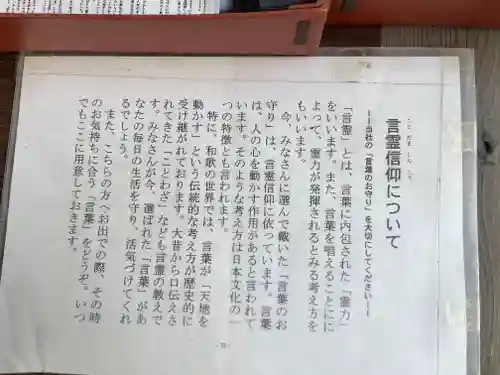 言霊信仰について
ことだましんこう
――当社の「言葉のお守り」を大切にしてください――
「言霊」とは、言葉に内包された「霊力」
をいいます。また、言葉を唱えることにに
よって、霊力が発揮されるとみる考え方を
もいいます。
今、みなさんに選んで戴いた「言葉のお
守り」は、言霊信仰に依っています。言葉
は、人の心を動かす作用があると言われて
います。そのような考え方は日本文化の一
つの特徴とも言われます。
特に、和歌の世界では、言葉が「天地を
動かす」という伝統的な考え方が歴史的に
受け継がれております。大昔から口伝えさ
れてきた「ことわざ」なども言霊の教えで
す。みなさんが今、選ばれた「言葉」があ
なたの毎日の生活を守り、活気づけてくれ
るでしょう。
また、こちらの方へお出での際、その時
のお気持ちに合う「言葉」をどうぞ。いつ
でもここに用意しておきます。